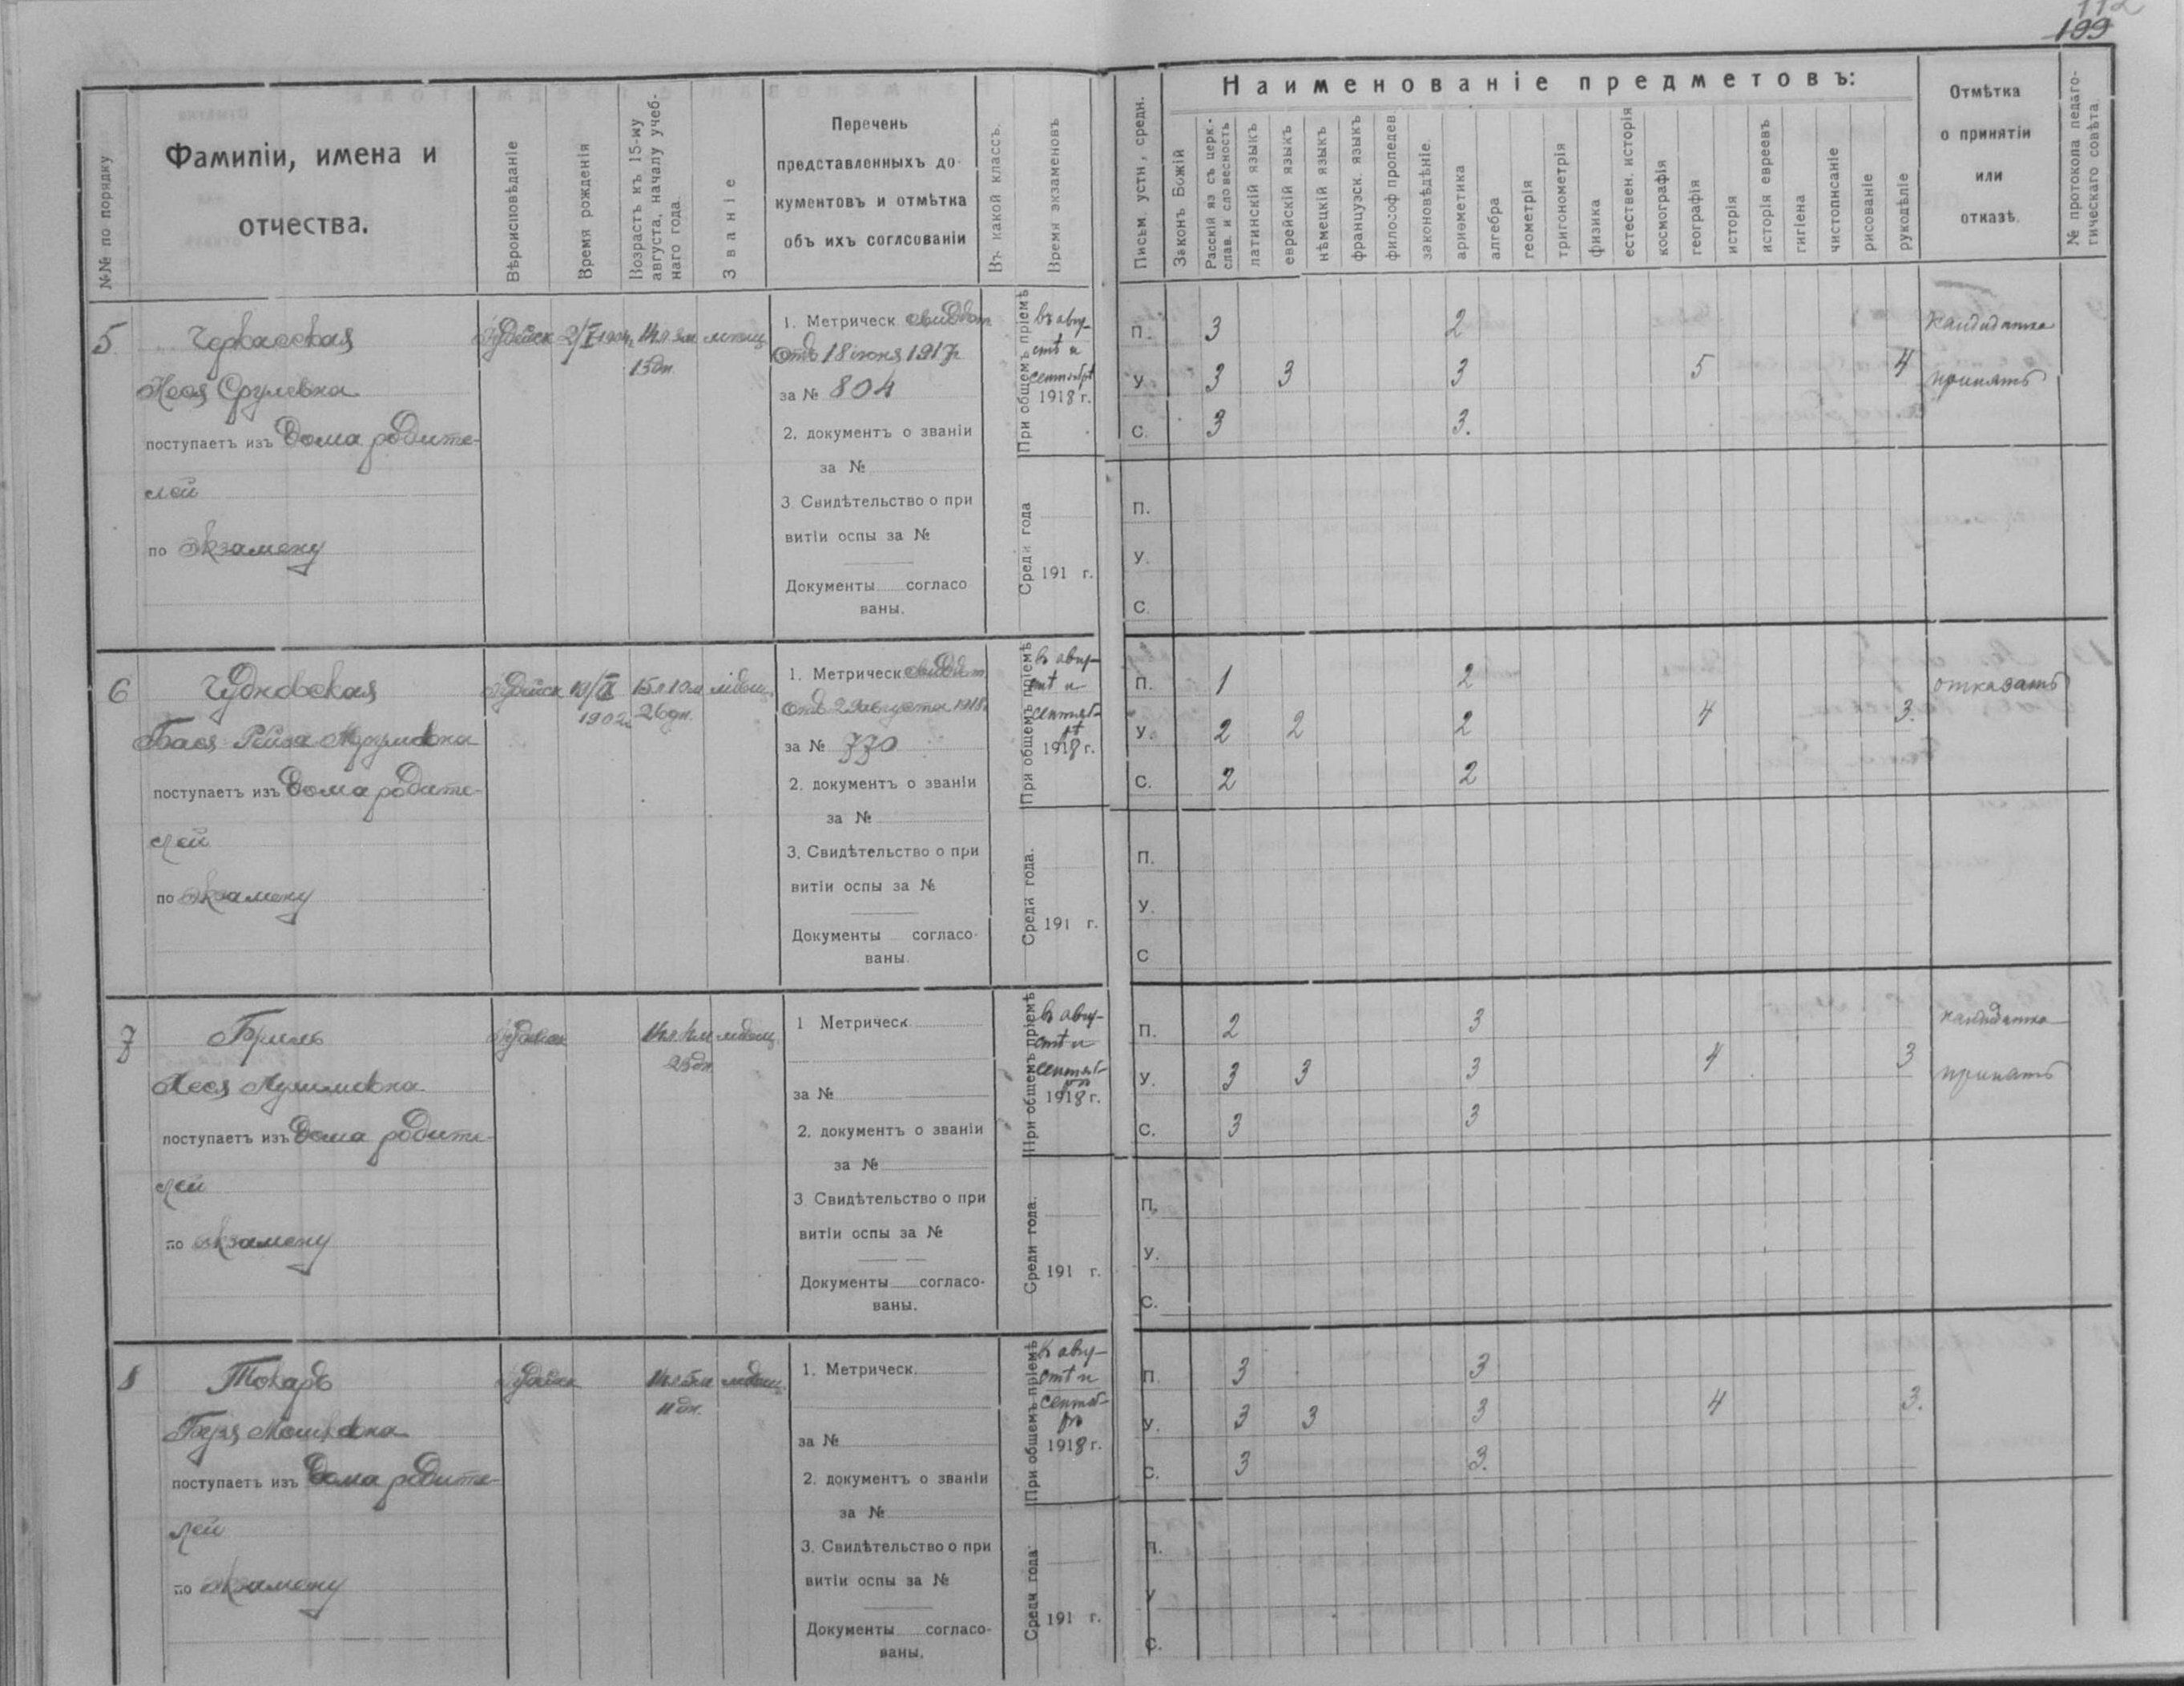 112
199
№№ по порядку
Фамиліи, имена и
отчества.
Вѣроисповѣданіе
Время рожденія
Возрастъ къ 15-му
августа, началу учеб-
наго года.
Званіе
Перечень
представленныхъ до-
кументовъ и отмѣтка
объ ихъ соглсованіи
Въ какой классъ.
Время экзаменовъ
Письм. устн, средн.
Наименованіе предметовъ:
Законъ Божій
Расскій яз съ церк.-
слав. и словесность
латинскій языкъ
еврейскій языкъ
нѣмецкій языкъ
французск. языкъ
философ пропедев.
законовѣдѣніе.
ариѳметика
алгебра
геометрія
тригонометрія
физика
естествен. исторія
космографія
географія
исторія
исторія евреевъ
гигіена
чистописаніе
рисованіе
рукодѣліе
Отмѣтка
о принятіи
или
отказѣ.
№ протокола педаго-
гическаго совѣта.
5
Черкасская
Хеся Срулевна
поступаетъ изъ дома родите-
лей
по экзамену
Іудейск
14 л. 3 м.
13 дн.
1. Метрическ свидѣт
отъ 18 іюня 1917 г
за № 804
2. документъ о званіи
за №
3. Свидѣтельство о при
витіи оспы за №
Документы согласо
ваны.
При общемъ пріемѣ
въ авгу-
стѣ и
сентябрѣ
1918 г.
Среди года
191 г.
П. 3 2
У. 3 3 3 5 4
С. 3 3.
кандидатка
принять
П.
У.
С.
6
Чудновская
Бася-Рейза
поступаетъ изъ дома родите-
лей
по экзамену
Іудейск
1902 г.
15 л 10 м
26 дн.
мѣщ.
1. Метрическ свидѣт
отъ 29 августа 1918 г
за № 770
2. документъ о званіи
за №
3. Свидѣтельство о при
витіи оспы за №
Документы согласо-
ваны.
При общемъ пріемѣ
въ авгу-
стѣ и
сентяб-
рѣ
1918 г.
Среди года.
191 г.
П. 1 2
У. 2 2 2 4 3.
С. 2 2
отказать
П.
У.
С
7
Бриль
Хеся
поступаетъ изъ дома родите-
лей
по экзамену
мѣщ.
1 Метрическ
за №
2. документъ о званіи
за №
3 Свидѣтельство о при
витіи оспы за №
Документы согласо-
ваны.
При общемъ пріемѣ
въ авгу-
стѣ и
сентяб-
рѣ
1918 г.
Среди года.
191 г.
П. 2 3
У. 3 3 3 4 3
С. 3 3
кандидатка
принять
П.
У.
С.
8
Токарь
поступаетъ изъ дома родите-
лей
по экзамену
Іудейск
14 л. 5 м
11 дн.
мѣщ.
1. Метрическ.
за №
2. документъ о званіи
за №
3. Свидѣтельство о при
витіи оспы за №
Документы согласо-
ваны.
При общемъ пріемѣ
въ авгу-
стѣ и
сентяб-
рѣ
1918 г.
Среди года.
191 г.
П. 3 3
У. 3 3 3 4 3.
С. 3 3.
П.
У
С.